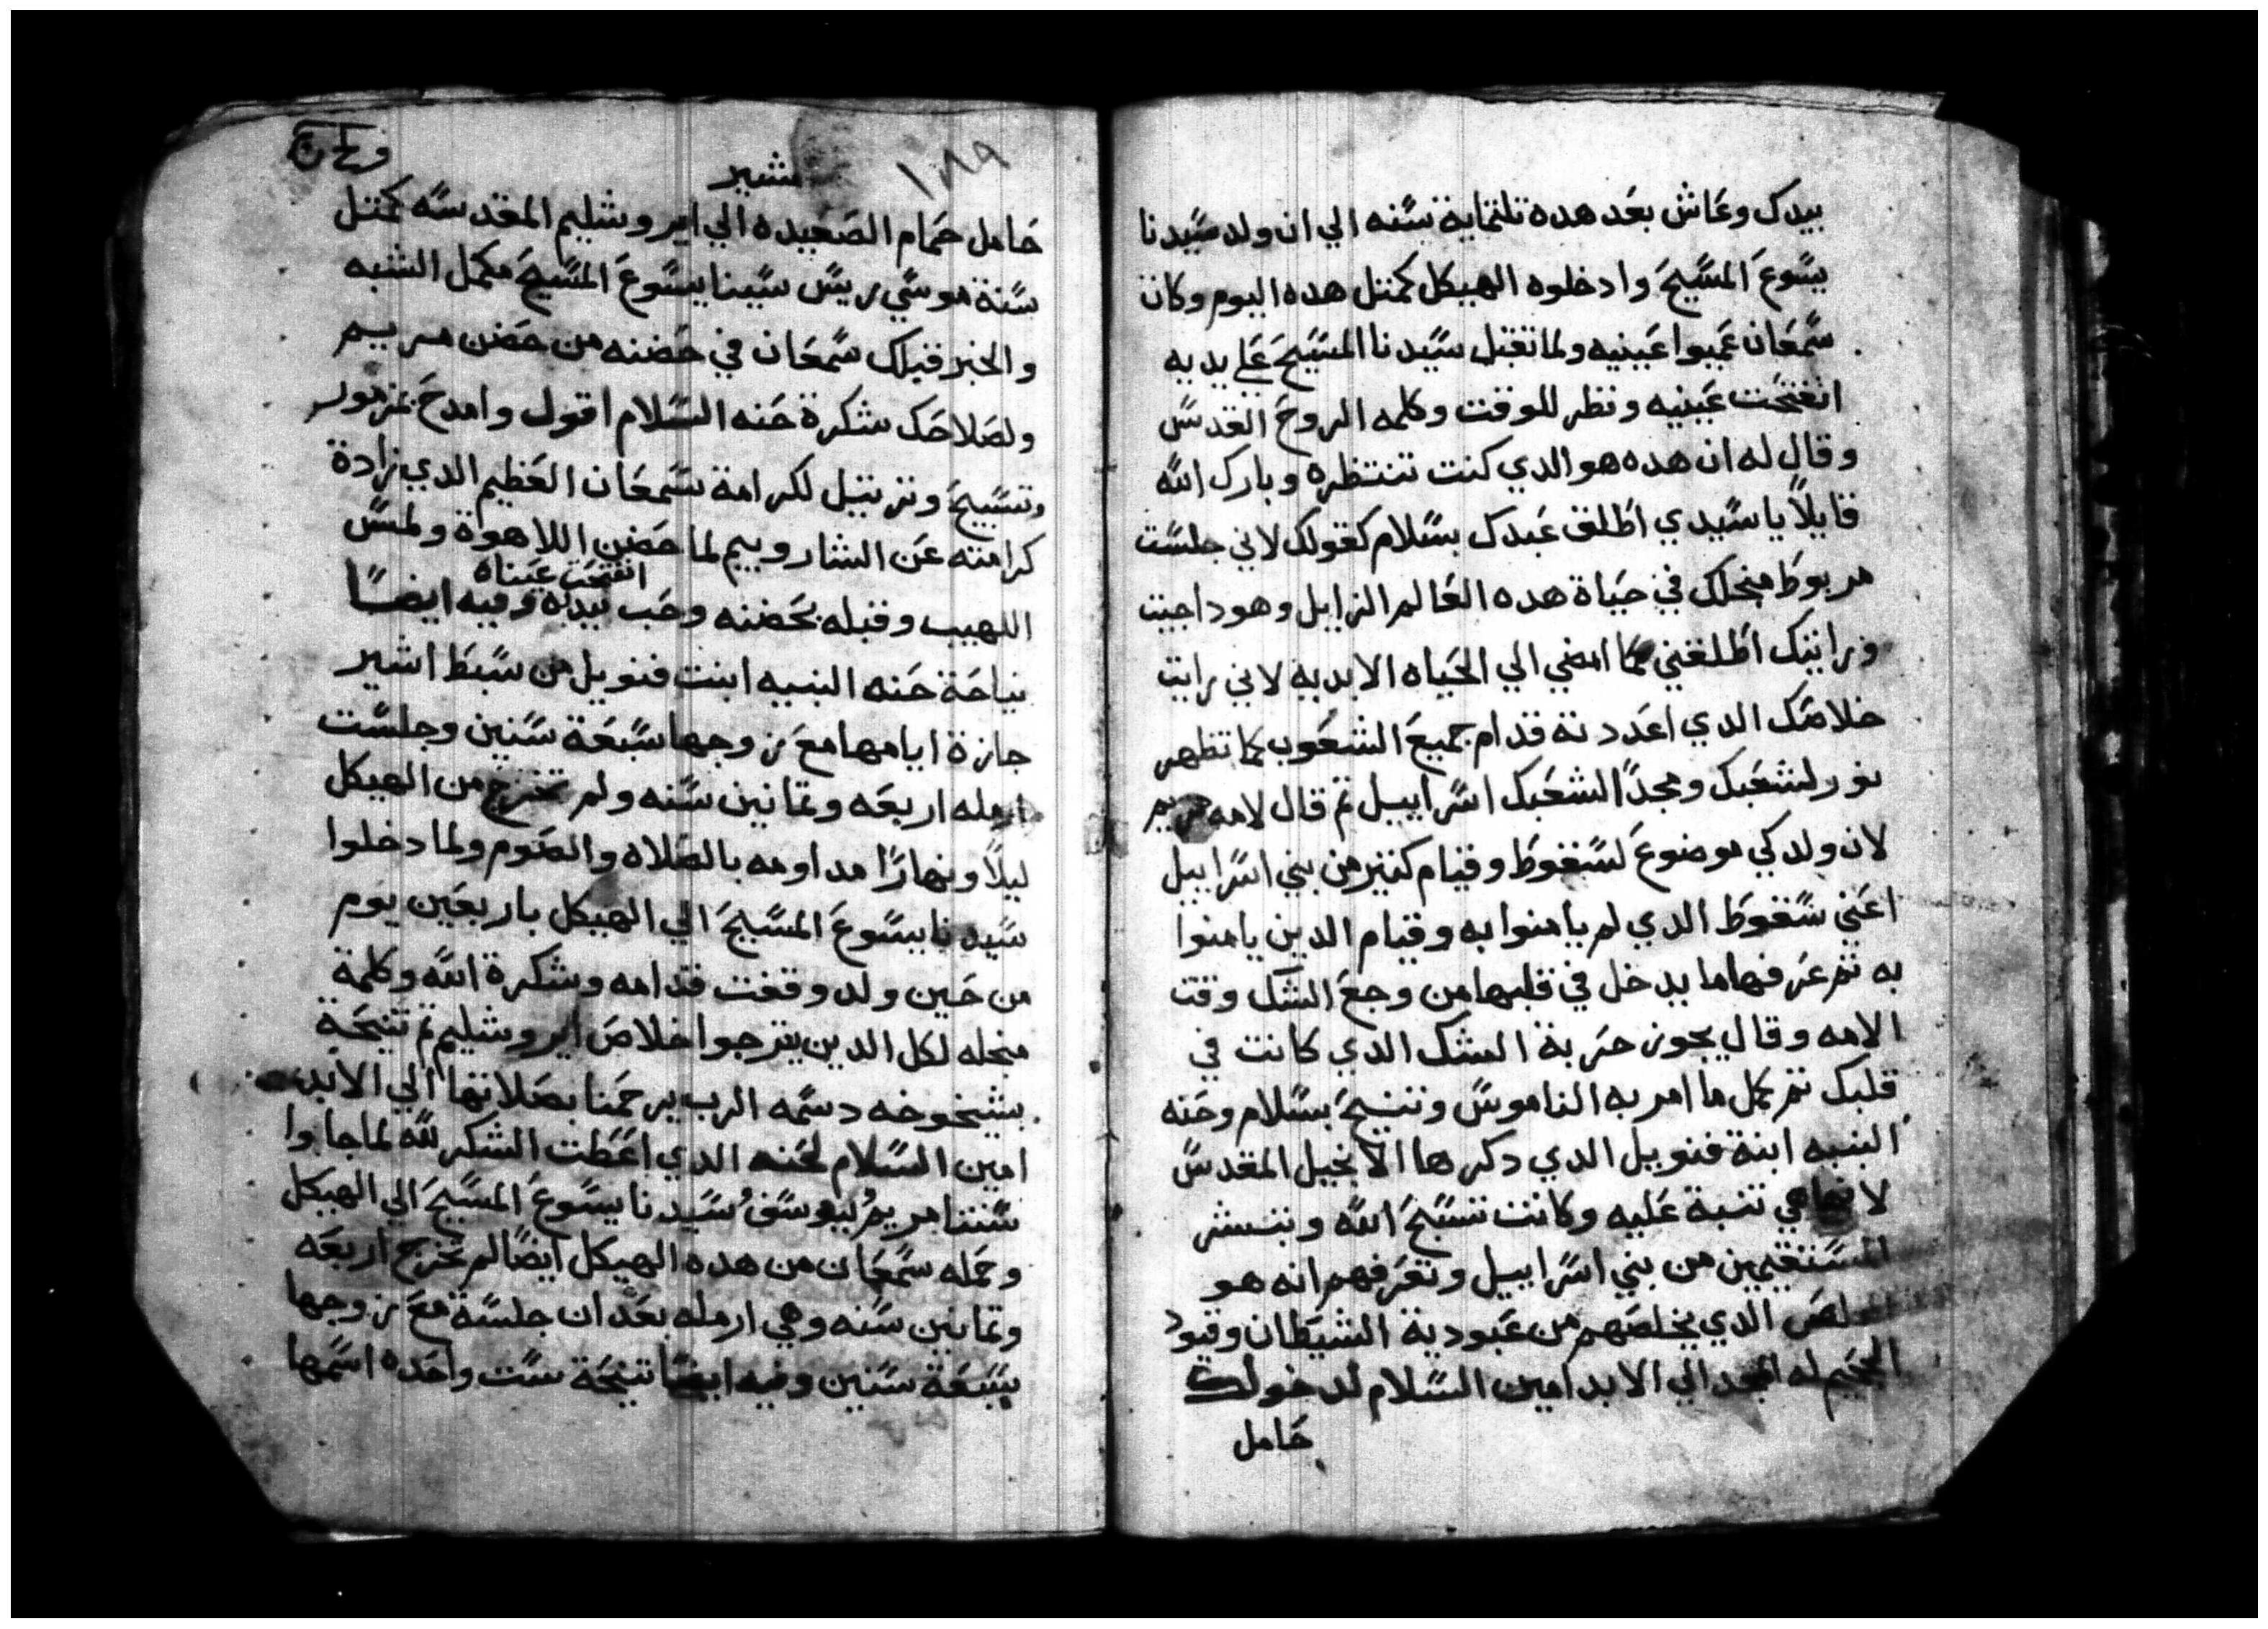 بيدك وعاش بعد هده تلتماية سنه الي ان ولد سيدنا
يسوع المسيح وادخلوه الهيكل كمتل هده اليوم وكان
سمعان عميوا عينيه ولما تقبل سيدنا المسيح علي يديه
انفتحت عينيه ونظر للوقت وكلمه الروح القدس
وقال له ان هده هو الدي كنت تنتظره وبارك الله
قايلاً يا سيدي اطلق عبدك بسلام كقولك لاني جلست
مربوط منجلك في حياة هده العالم الزايل وهودا جيت
ورايتك اطلقني كما امضي الي الحياه الابديه لاني رايت
خلاصك الدي اعددته قدام جميع الشعوب كما تظهر
نور لشعبك ومجداً لشعبك اسراييل تم قال لامه مريم
لان ولدكي موضوع لسقوط وقيام كتير من بني اسراييل
اعني سقوط الدي لم يامنوا به وقيام الدين يامنوا
به تم عرفها ما يدخل في قلبها من وجع الشك وقت
الامه وقال يجوز حربة الشك الدي كانت في
قلبك تم كمل ما امر به الناموس وتنيح بسلام وحنه
النبيه ابنة فنوييل الدي دكرها الانجيل المقدس
لانها هي تنبة عليه وكانت تسبح الله وتبشر
المستقيمين من بني اسراييل وتعرفهم انه هو
المخلص الدي يخلصهم من عبودية الشيطان وقيود
الجحيم له المجد الي الابد امين السلام لدخولك
حامل
١٨٩
بشير
حامل حمام الصعيده الي ايروشليم المقدسه كمتل
سنة موسي ريس سينا يسوع المسيح مكمل الشبه
والخبر قبلك سمعان في حضنه من حضن مريم
ولصلاحك شكرة حنه السلام اقول وامدح بمزمور
وتسبيح وترتيل لكرامة سمعان العظيم الدي زادة
كرامته عن الشاروبيم لما حضن اللاهوة ولمس
انفتحت عيناه
اللهيب وقبله بحضنه وحب بيداه وفيه ايضاً
نياحة حنه النبيه ابنت فنوييل من سبط اشير
جازة ايامها مع زوجها سبعة سنين وجلست
ارمله اربعه وتمانين سنه ولم تخرج من الهيكل
ليلاً ونهاراً مداومه بالصلاه والصوم ولما دخلوا
سيدنا يسوع المسيح الي الهيكل باربعين يوم
من حين ولد وقفت قدامه وشكرة الله وكلمة
منجله لكل الدين يترجوا خلاص ايروشليم تم تنيحة
بشيخوخه دسمه الرب يرحمنا بصلاتها الي الابد
امين السلام لحنه الدي اعطت الشكر لله لما جابوا
ستنا مريم ليوسف سيدنا يسوع المسيح الي الهيكل
وحمله سمعان من هده الهيكل ايضاً لم تخرج اربعه
وتمانين سنه وهي ارمله بعد ان جلسة مع زوجها
سبعة سنين وفيه ايضاً تنيحة ست واحده اسمها